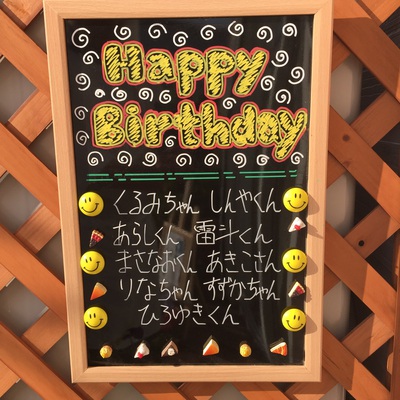 Happy
Birthday
くるみちゃん しんやくん
あらしくん 雷斗くん
まさなおくん あきこさん
りなちゃん すずかちゃん
ひろゆきくん